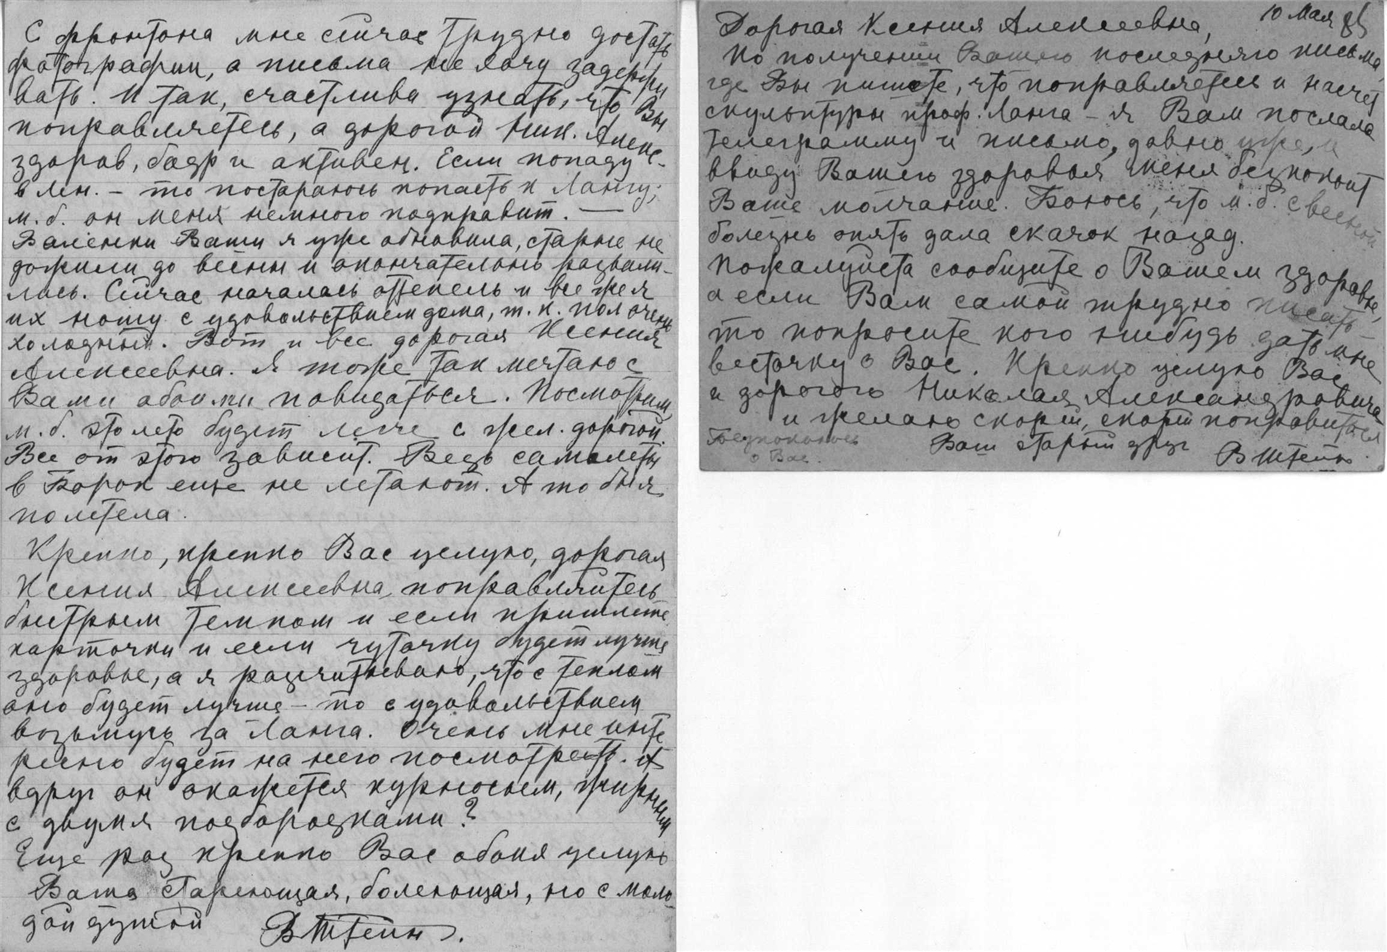 С фронтона мне сейчас трудно достать
фотографии, а письма не хочу задержи
вать. И так, счастлива узнать, что Вы
поправляетесь, а дорогой Ник. Алекс-
здоров, бодр и активен. Если попаду
в Лен. – то постараюсь попасть к Лангу;
м.б. он меня немного подправит. —
Валенки Ваши я уже обновила, старые не
дожили до весны и окончательно развали-
лись. Сейчас началась оттепель и все же я
их ношу с удовольствием дома, т.к. пол очень
холодный. Вот и все дорогая Ксения
Алексеевна. Я тоже так мечтаю с
Вами обоими повидаться. Посмотрим,
м.б. это лето будет легче с жел. дорогой.
Все от этого зависит. Ведь самолеты
в Борок еще не летают. А то бы я
полетела.
Крепко, крепко Вас целую, дорогая
Ксения Алексеевна, поправляйтесь
быстрым темпом и если пришлете
карточки и если чуточку будет лучше
здоровье, а я расчитываю, что с теплом
оно будет лучше – то с удовольствием
возьмусь за Ланга. Очень мне инте
ресно будет на него посмотреть. А
вдруг он окажется курносым, жирным
с двумя подбородками?
Еще раз крепко Вас обоих целую
Ваша стареющая, болеющая, но с моло-
дой душой ВШтейн.
10 Мая
Дорогая Ксения Алексеевна,
По получении Вашего последняго письма,
где Вы пишете, что поправляетесь и насчет
скульптуры проф. Ланга – я Вам послала
телеграмму и письмо, давно уже, и
ввиду Вашего здоровья меня безпокоит
Ваше молчание. Боюсь, что м.б. с весной
болезнь опять дала скачок назад.
Пожалуйста сообщите о Вашем здоровье,
а если Вам самой трудно писать
то попросите кого нибудь дать мне
весточку о Вас. Крепко целую Вас
и дорогого Николая Александровича
и желаю скорей, скорей поправиться
Безпокоюсь Ваш старый друг
о Вас. ВШтейн